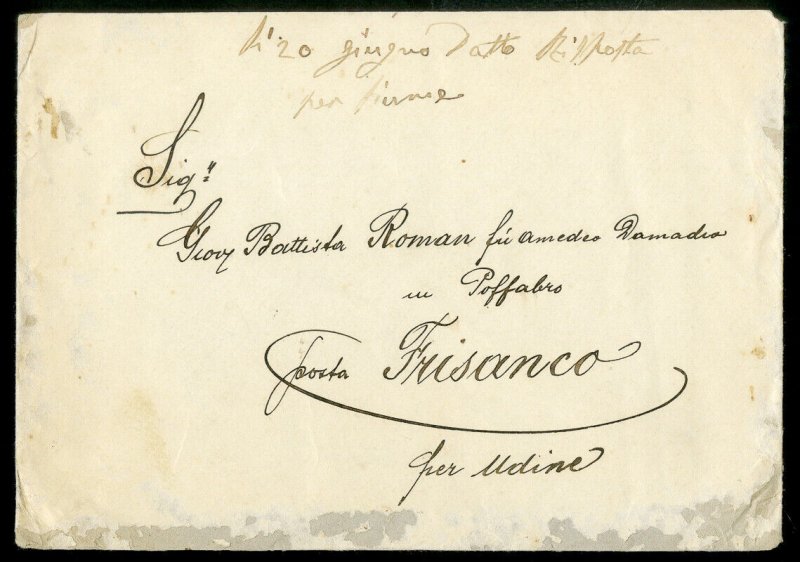 li 20 giugno Datto Risposta
per
Sigr
Giov Battista Roman fù Amedeo Damadio
in Poffabro
posta Frisanco
per Udine